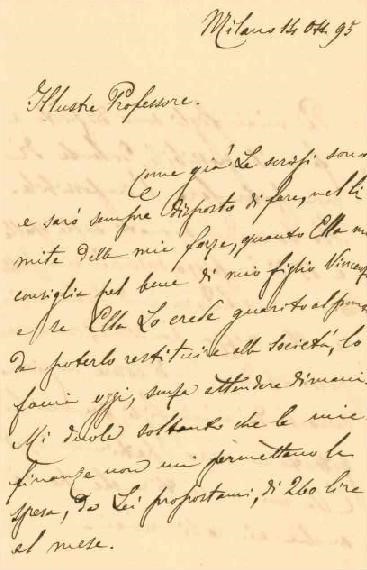 Milano 14 Ott 95
Illustre Professore.
Come già Le scrissi sono
e sarò sempre disposto di fare, nel li
mite delle mie forze, quanto Ella mi
consiglia pel bene di mio figlio Vincenzo
e se Ella Lo crede guarito al punto
da poterlo restituire alla società, lo
faccia oggi, senza attendere dimani.
Mi duole soltanto che le mie
finanze non mi permettano la
spesa, da Lei propostami, di 260 lire
al mese.